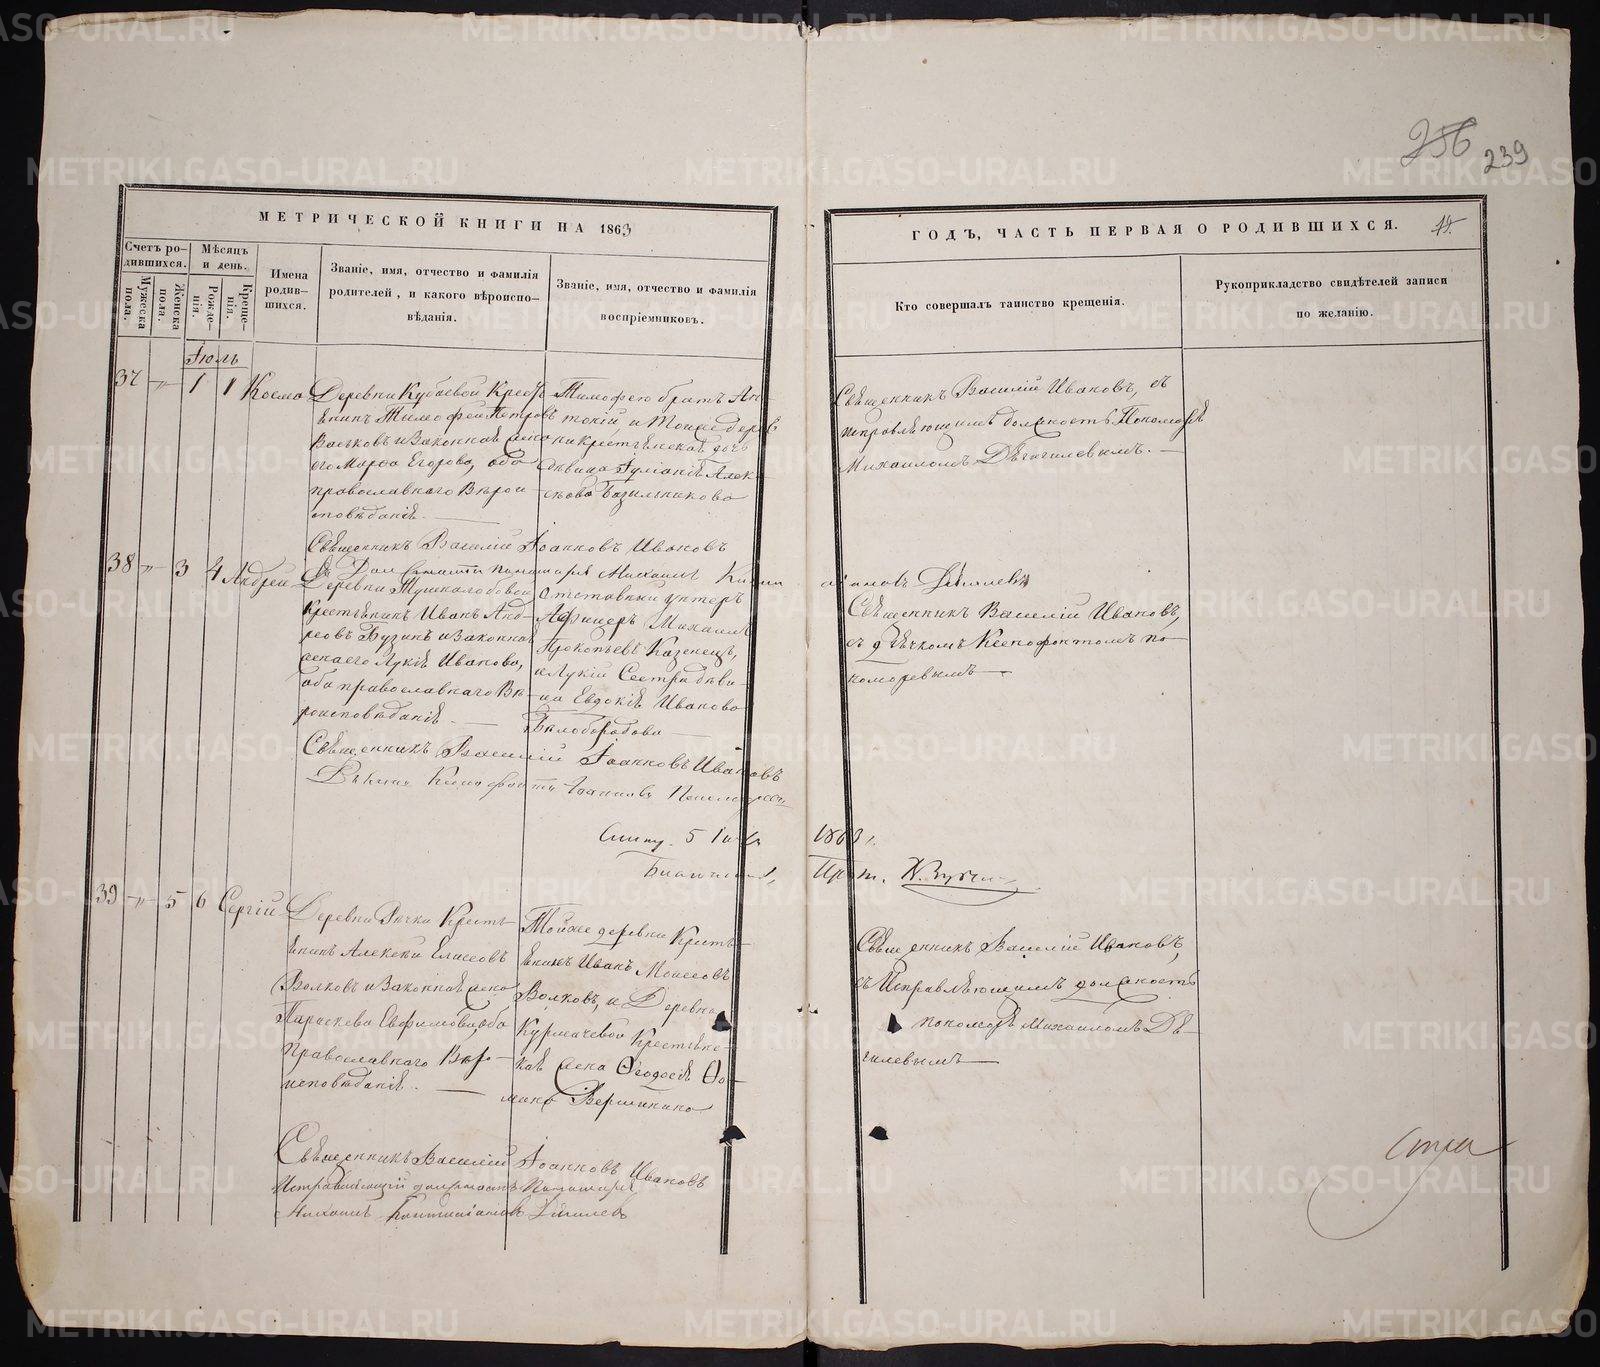 256
239
МЕТРИЧЕСКОЙ КНИГИ НА 1863
Счетъ ро-
дившихся.
Мужеска
пола.
Женска
пола.
Мѣсяцъ
и день.
Рожде-
нія.
Креще-
нія.
Имена
родив-
шихся.
Званіе, имя, отчество и фамилія
родителей, и какого вѣроиспо-
вѣданія.
Званіе, имя, отчество и фамилія
воспріемниковъ.
Іюль
37 — " — 1 1 Косма
Деревни Кубаевой Кресть-
янинъ Тимофей Петровъ
и законная жена
его Марѳа Егорова, оба
православнаго Вѣрои-
сповѣданія. —
Тимофею братъ Ан-
и Тойже дерев-
ни крестьянская дочь
дѣвица Алек-
сѣева
Священникъ Василій Іоанновъ Ивановъ
Михаилъ
38 — " — 3 4 Андрей
Деревни
Крестьянинъ Иванъ Анд-
реевъ Бузинъ и законная
жена его Лукія Иванова,
оба православнаго Вѣ-
роисповѣданія. —
отставный унтеръ
Афицеръ Михаилъ
Прокопьевъ Казенецъ,
и Лукіи Сестра дѣви-
ца Евдокія Иванова
Бѣлобородова —
Священникъ Василій Іоанновъ Ивановъ
Іоанновъ
5
39 — " — 5 6 Сергій
Деревни Рѣчки Кресть-
янинъ Алексѣй Елисеевъ
Волковъ и законная жена
Параскева Евфимова, оба
Православнаго Вѣро-
исповѣданія. —
Тойже деревни Кресть-
янинъ Иванъ Моисеевъ
Волковъ, и Деревни
Курмачевой Крестьянс-
кая жена Ѳеодосія Ѳо-
мина Вершинина
Священникъ Василій Іоанновъ Ивановъ
Исправляющій должность Пономаря
Михаилъ
ГОДЪ, ЧАСТЬ ПЕРВАЯ О РОДИВШИХСЯ.
Кто совершалъ таинство крещенія.
Рукоприкладство свидѣтелей записи
по желанію.
Священникъ Василій Ивановъ, съ
исправляющимъ должность Пономаря
Михаиломъ
Священникъ Василій Ивановъ,
съ дьячкомъ Ксенофонтомъ По-
номаревымъ —
1863
Священникъ Василій Ивановъ,
съ Исправляющимъ должность
пономаря Михаиломъ Дя-
гилевымъ —